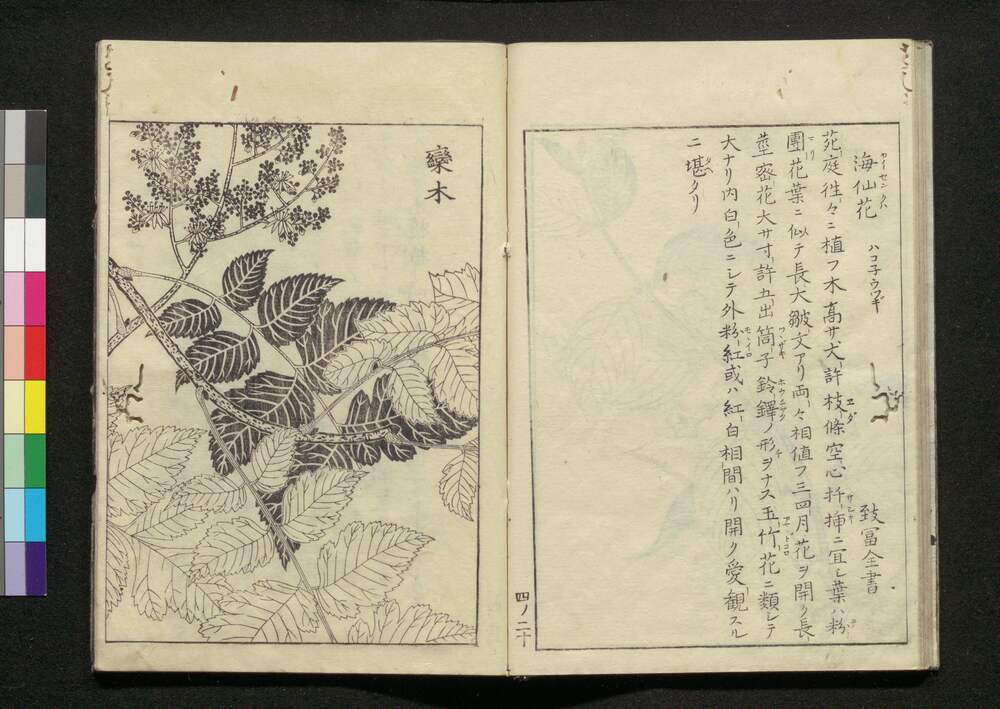 海仙花 ハコ子ウツギ 致冨全書
苑庭徃々ニ植フ木髙サ丈許枝條空心扦挿ニ宜シ葉ハ粉
團花葉ニ似テ長大皺文アリ両々相値フ三四月花ヲ開ク長
莖密花大サ寸許五出筒子鈴鐸ノ形ヲナス玉竹花ニ類シテ
大ナリ内白色ニシテ外粉紅或ハ紅白相間ハリ開ク愛観スル
ニ堪タリ
四ノ二十
欒木